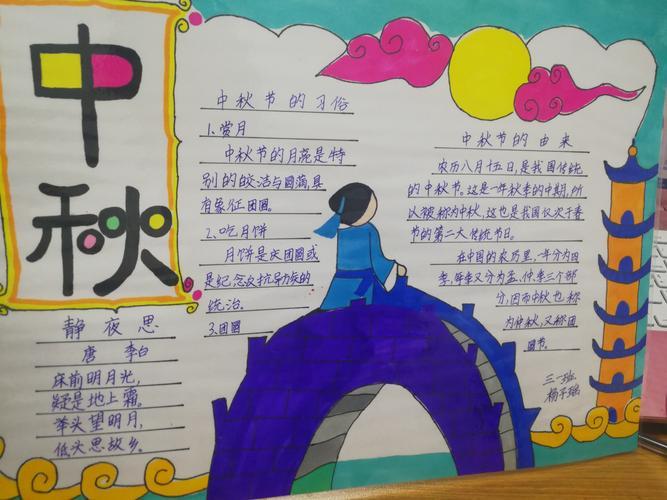 中秋
静夜思
唐 李白
床前明月光，
疑是地上霜。
举头望明月，
低头思故乡。
中秋节的习俗
1、赏月
中秋节的月亮是特
别的皎洁与圆满,具
有象征团圆。
2、吃月饼
月饼是庆团圆或
是纪念反抗异族的
统治。
3、团圆
中秋节的由来
农历八月十五日,是我国传统
的中秋节。这是一年秋季的中期,所
以被称为中秋,这也是我国仅次于春
节的第二大传统节日。
在中国的农历里,一年分为四
季,每季又分为孟、仲、季三个部
分,因而中秋也称
为仲秋,又称团
圆节。
三一班
杨子瑶